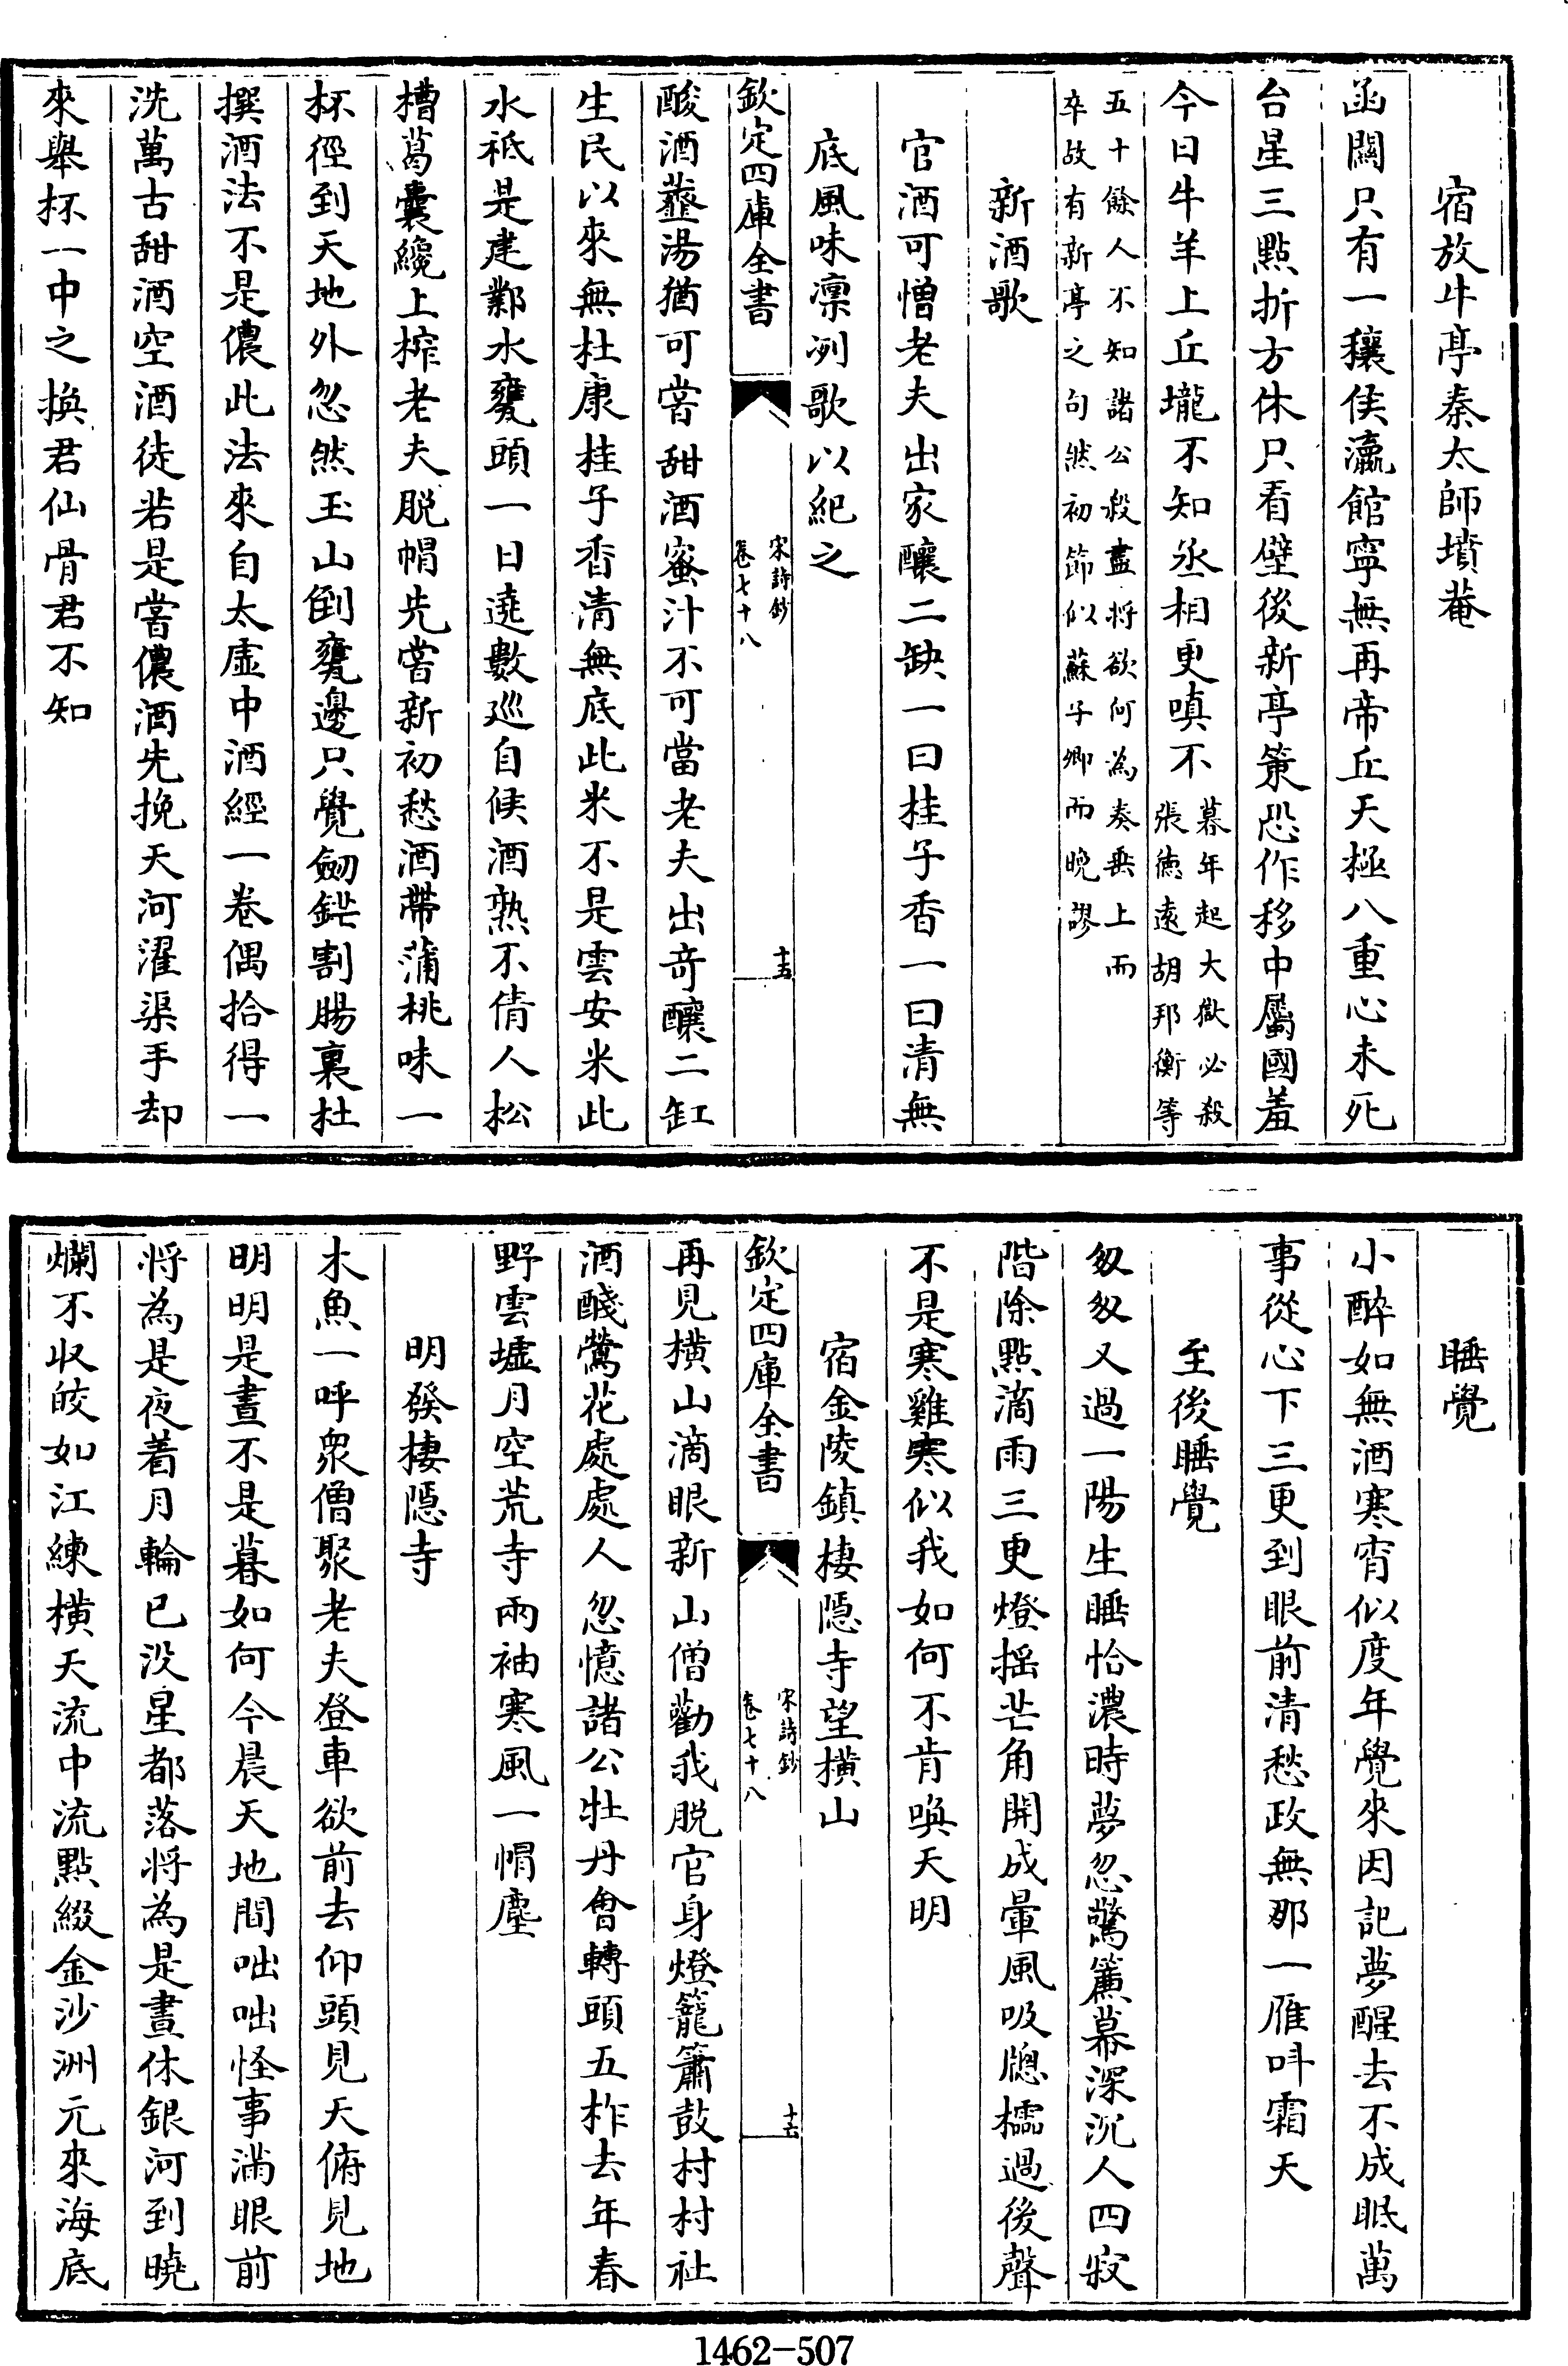 宿放牛亭秦太師墳菴
函關只有一穰侯瀛館寧無再帝丘天極八重心未死
台星三點折方休只看壁後新亭䇿恐作移中屬國羞
今日牛羊上丘壠不知丞相更嗔不
暮年起大獄必殺
張徳逺胡邦衡等
五十餘人不知諸公殺盡将欲何為奏垂上而
卒故有新亭之句然初節似蘇子卿而晚謬
新酒歌
官酒可憎老夫出家釀二缺一曰桂子香一曰清無
底風味凛冽歌以紀之
欽定四庫全書
宋詩鈔
卷七十八
十五
酸酒虀湯猶可嘗甜酒蜜汁不可當老夫出竒釀二缸
生民以來無杜康桂子香清無底此米不是雲安米此
水祗是建鄴水甕頭一日遶數巡自候酒熟不倩人松
槽葛囊纔上榨老夫脱帽先嘗新初愁酒帶蒲桃味一
杯徑到天地外忽然玉山倒甕邊只覺劒鋩割腸裏杜
撰酒法不是儂此法來自太虚中酒經一卷偶拾得一
洗萬古甜酒空酒徒若是嘗儂酒先挽天河濯渠手却
來舉杯一中之換君仙骨君不知
睡覺
小醉如無酒寒宵似度年覺來因記夢醒去不成眠萬
事從心下三更到眼前清愁政無那一雁呌霜天
至後睡覺
匆匆又過一陽生睡恰濃時夢忽驚簾幕深沉人四寂
階除點滴雨三更燈揺芒角開成暈風吸牕櫺過後聲
不是寒雞寒似我如何不肯喚天明
宿金陵鎮棲隠寺望横山
欽定四庫全書
宋詩鈔
卷七十八
十六
再見横山滴眼新山僧勸我脱官身燈籠簫鼓村村社
酒醆鶯花處處人忽憶諸公牡丹會轉頭五柞去年春
野雲墟月空荒寺兩袖寒風一帽塵
明發棲隠寺
木魚一呼衆僧聚老夫登車欲前去仰頭見天俯見地
明明是晝不是暮如何今晨天地間咄咄怪事滿眼前
将為是夜着月輪已没星都落将為是晝休銀河到曉
爛不収皎如江練横天流中流㸃綴金沙洲元來海底
1462-507